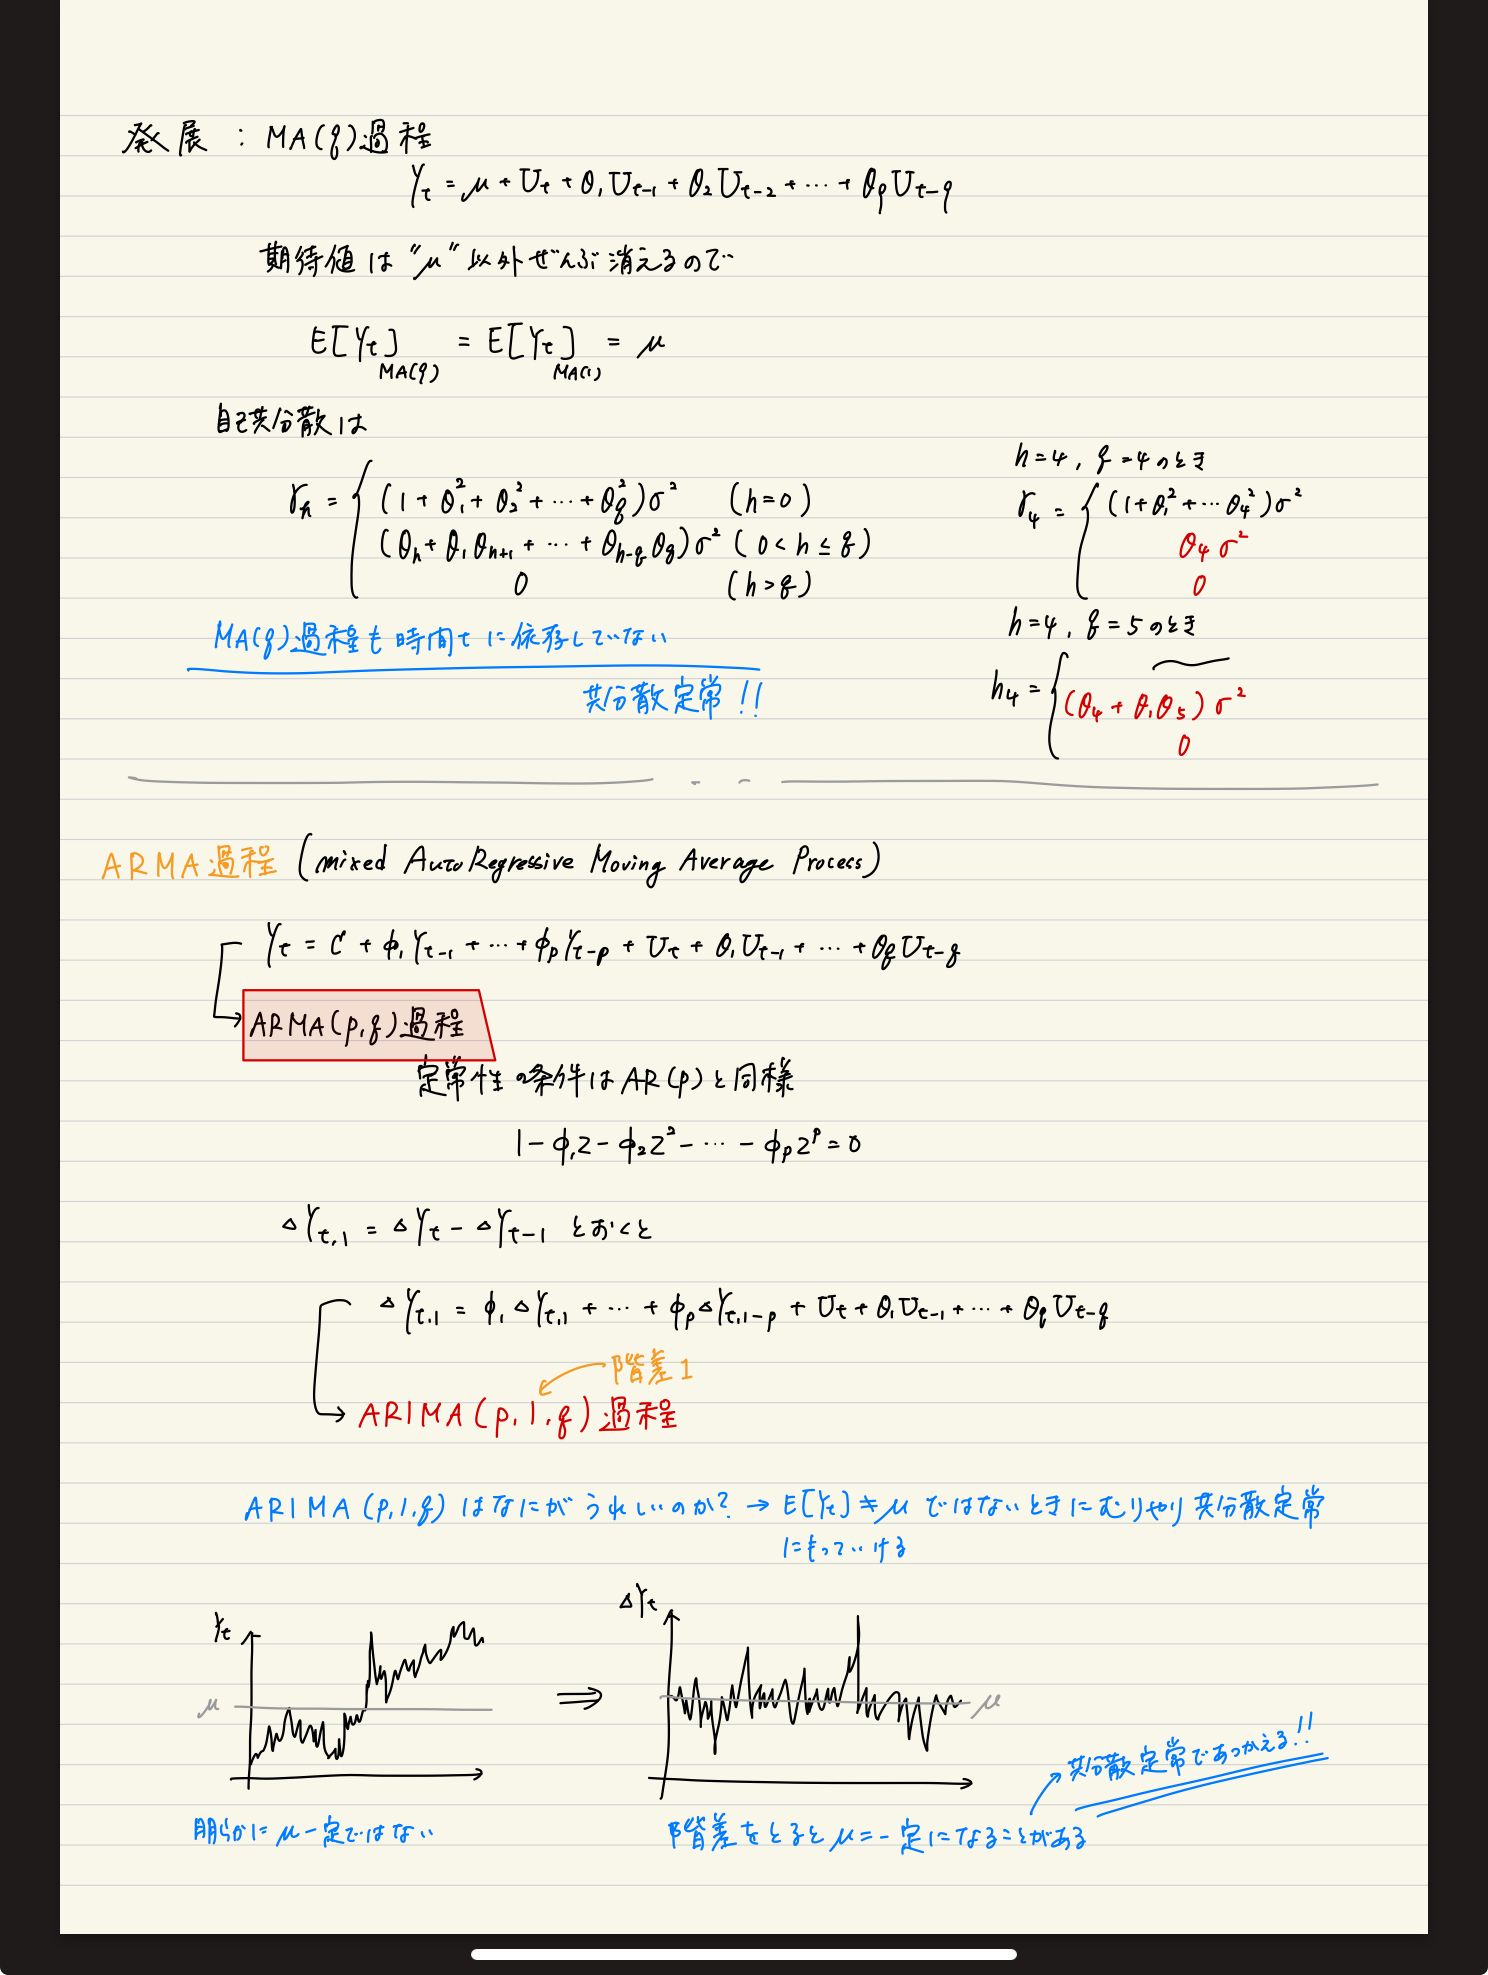 発展 : MA(q)過程
Yt = μ + Ut + θ1Ut-1 + θ2Ut-2 + … + θqUt-q
期待値は "μ" 以外ぜんぶ消えるので
E[Yt]MA(q) = E[Yt]MA(1) = μ
自己共分散は
γh = { (1 + θ1² + θ2² + … + θq²)σ² (h=0)
(θh + θ1θh+1 + … + θh-qθq)σ² (0 < h ≤ q)
0 (h > q)
h=4, q=4のとき
γ4 = { (1+θ1²+…θ4²)σ²
θ4σ²
0
MA(q)過程も時間tに依存していない
共分散定常!!
h=4, q=5のとき
h4 = { (θ4 + θ1θ5)σ²
0
ARMA過程 (mixed AutoRegressive Moving Average Process)
Yt = C + φ1Yt-1 + … + φpYt-p + Ut + θ1Ut-1 + … + θqUt-q
ARMA(p,q)過程
定常性の条件はAR(p)と同様
1 - φ1z - φ2z² - … - φpz^p = 0
△Yt,1 = △Yt - △Yt-1 とおくと
△Yt,1 = φ1△Yt,1 + … + φp△Yt,1-p + Ut + θ1Ut-1 + … + θqUt-q
階差1
ARIMA(p,1,q)過程
ARIMA(p,1,q)はなにがうれしいのか? → E[Yt]≠μ ではないときにむりやり共分散定常
にもっていける
Yt
μ
⇒
△Yt
μ
明らかにμ一定ではない
階差をとるとμ=一定になることがある
共分散定常であつかえる!!